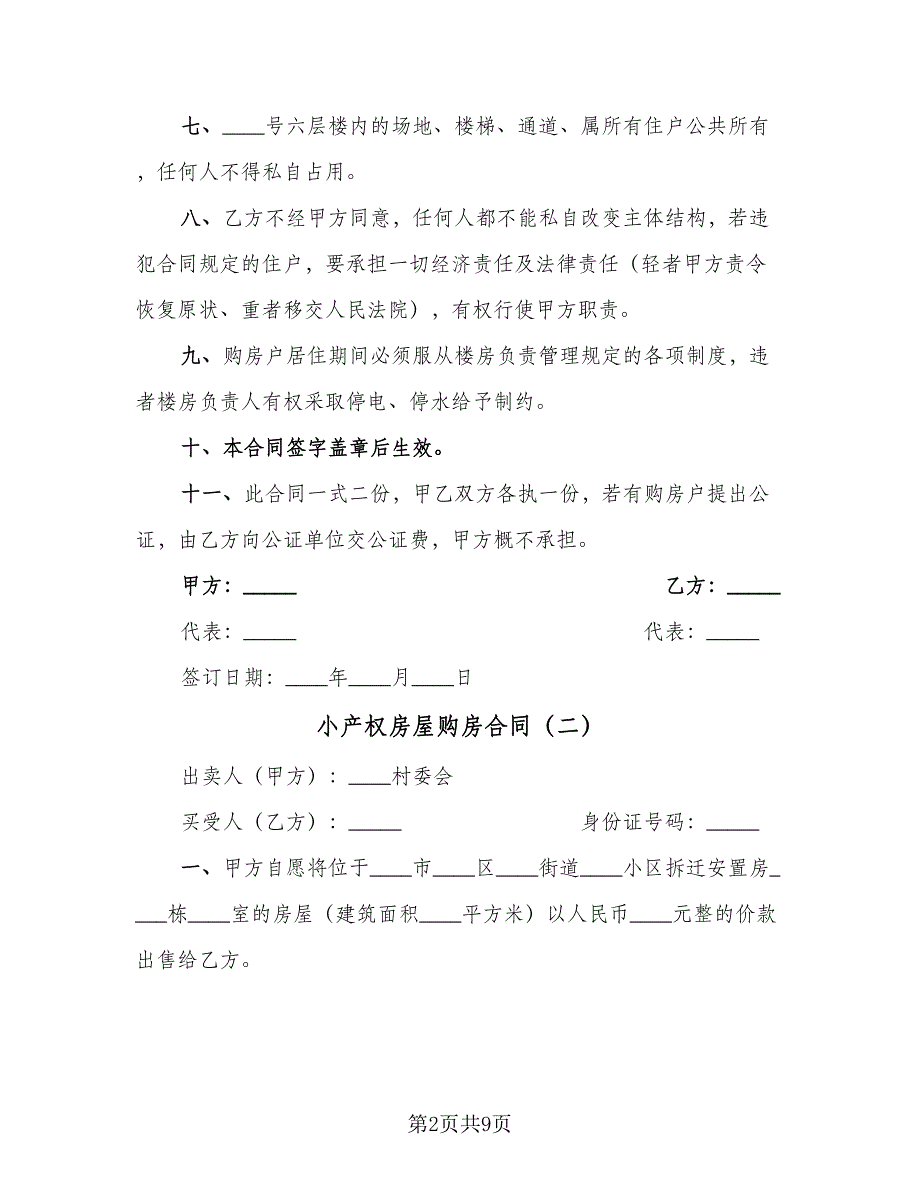 七、____号六层楼内的场地、楼梯、通道、属所有住户公共所有
，任何人不得私自占用。
八、乙方不经甲方同意，任何人都不能私自改变主体结构，若违
犯合同规定的住户，要承担一切经济责任及法律责任（轻者甲方责令
恢复原状、重者移交人民法院），有权行使甲方职责。
九、购房户居住期间必须服从楼房负责管理规定的各项制度，违
者楼房负责人有权采取停电、停水给予制约。
十、本合同签字盖章后生效。
十一、此合同一式二份，甲乙双方各执一份，若有购房户提出公
证，由乙方向公证单位交公证费，甲方概不承担。
甲方：_____ 乙方：_____
代表：_____ 代表：_____
签订日期：____年____月____日
小产权房屋购房合同（二）
出卖人（甲方）：____村委会
买受人（乙方）：_____ 身份证号码：_____
一、甲方自愿将位于____市____区____街道____小区拆迁安置房_
___栋____室的房屋（建筑面积____平方米）以人民币____元整的价款
出售给乙方。
第2页共9页